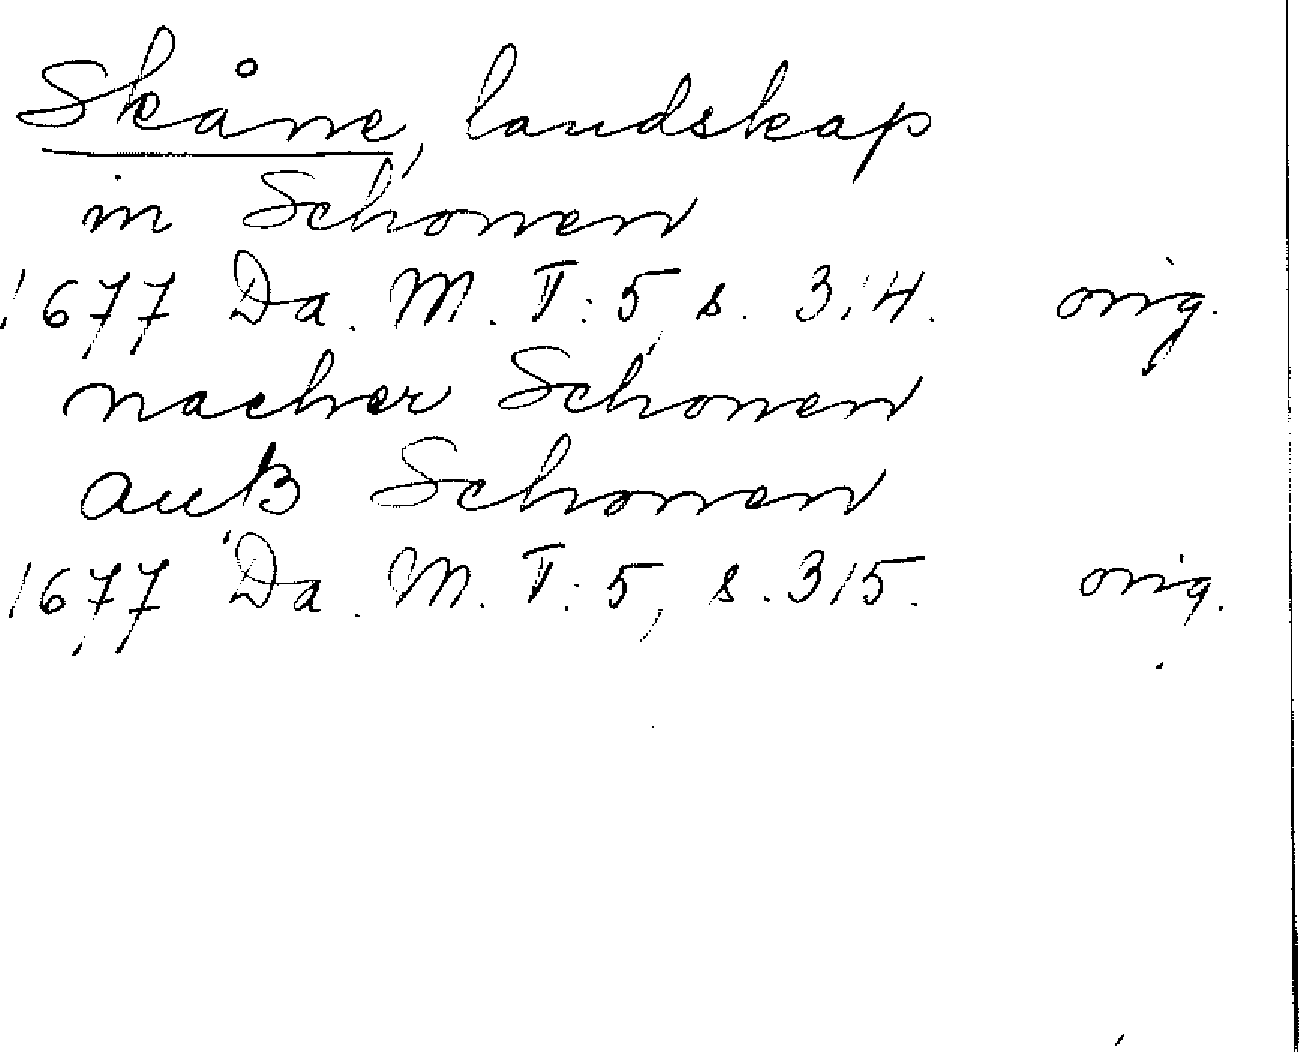 Skåne, landskap
in Schonen
1677 Da. M. V:5, s. 314. orig.
nacher Schonen
auß Schonen
1677 Da. M. V:5, s. 315. orig.